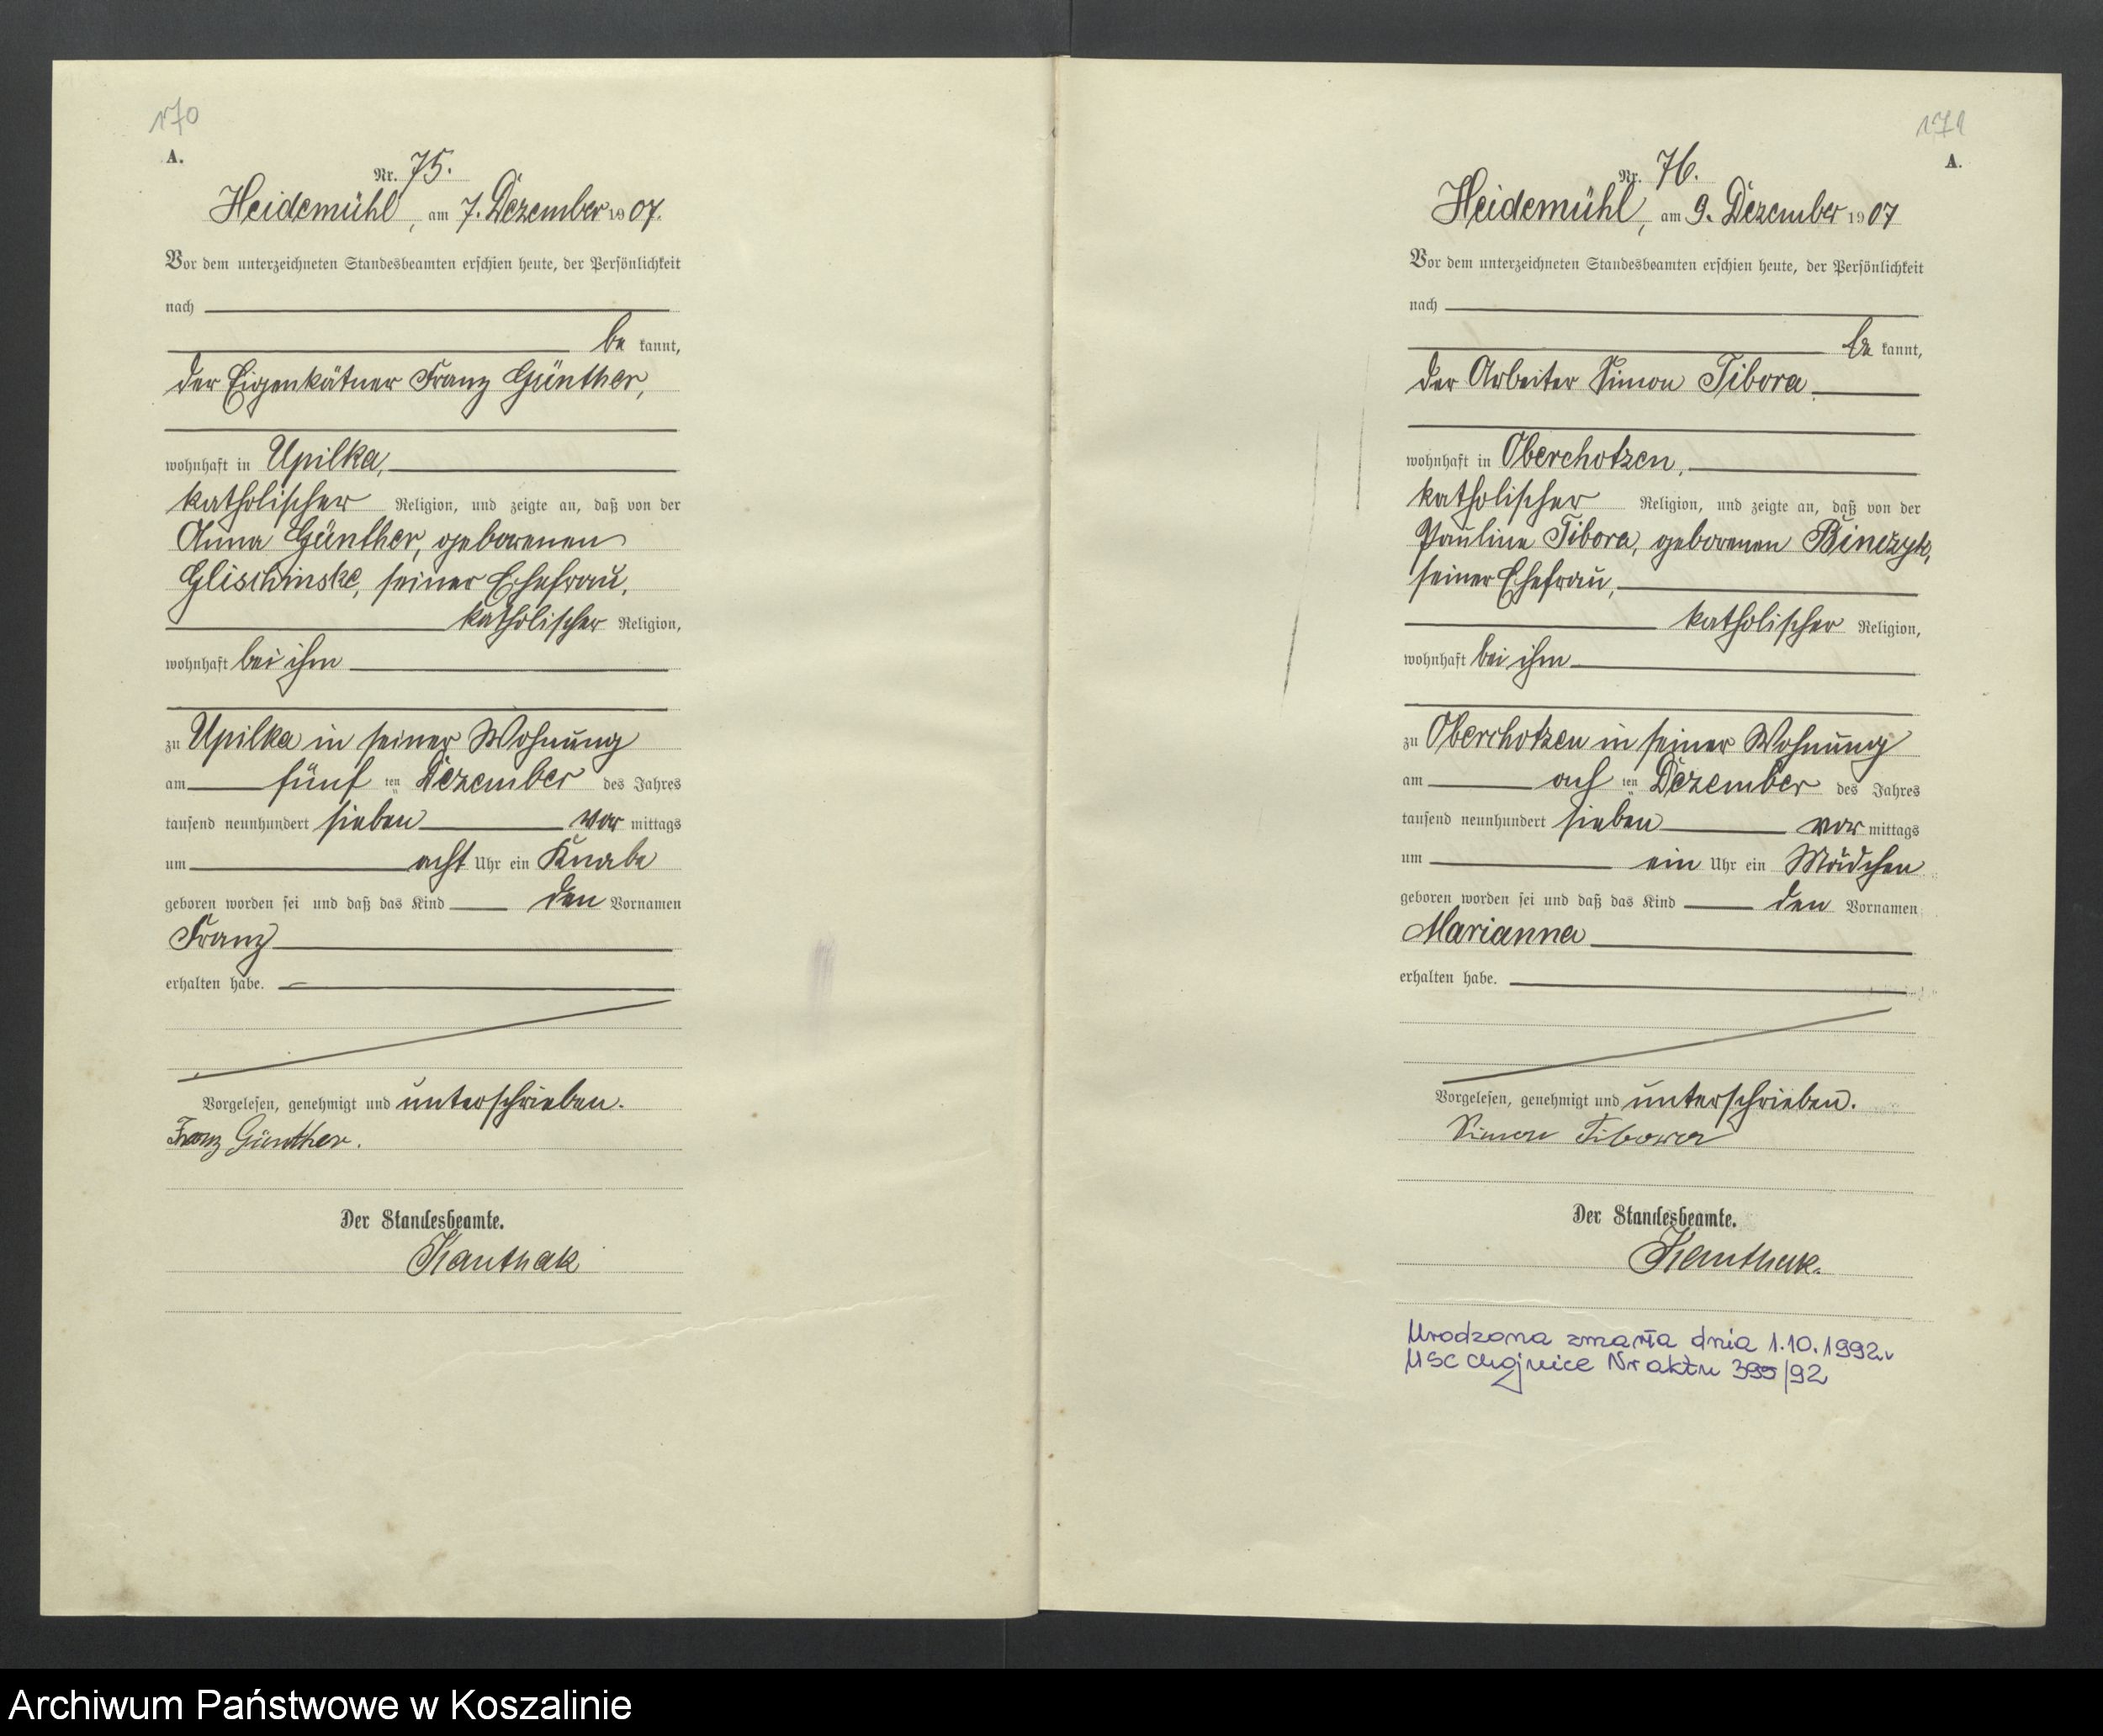 170
A.
Nr. 75.
Heidemühl, am 7. Dezember 1907.
Vor dem unterzeichneten Standesbeamten erschien heute, der Persönlichkeit
nach
be kannt,
der Eigenkätner Franz Günther,
wohnhaft in Upilka,
katholischer Religion, und zeigte an, daß von der
Anna Günther, geborenen
Glischinske, seiner Ehefrau,
katholischer Religion,
wohnhaft bei ihm
zu Upilka in seiner Wohnung
am fünf ten Dezember des Jahres
tausend neunhundert sieben vor mittags
um acht Uhr ein Knabe
geboren worden sei und daß das Kind den Vornamen
Franz
erhalten habe.
Vorgelesen, genehmigt und unterschrieben.
Franz Günther.
Der Standesbeamte.
Kanthak
171
A.
Nr. 76.
Heidemühl, am 9. Dezember 1907
Vor dem unterzeichneten Standesbeamten erschien heute, der Persönlichkeit
nach
be kannt,
der Arbeiter Simon Tibora,
wohnhaft in Oberchotzen,
katholischer Religion, und zeigte an, daß von der
Pauline Tibora, geborenen Binczyk,
seiner Ehefrau,
katholischer Religion,
wohnhaft bei ihm
zu Oberchotzen in seiner Wohnung
am ach ten Dezember des Jahres
tausend neunhundert sieben vor mittags
um ein Uhr ein Mädchen
geboren worden sei und daß das Kind den Vornamen
Marianna
erhalten habe.
Vorgelesen, genehmigt und unterschrieben.
Simon Tibora
Der Standesbeamte.
Kanthak.
Urodzona zmarła dnia 1.10.1992r
USC Chojnice Nr aktu 399/92
Archiwum Państwowe w Koszalinie